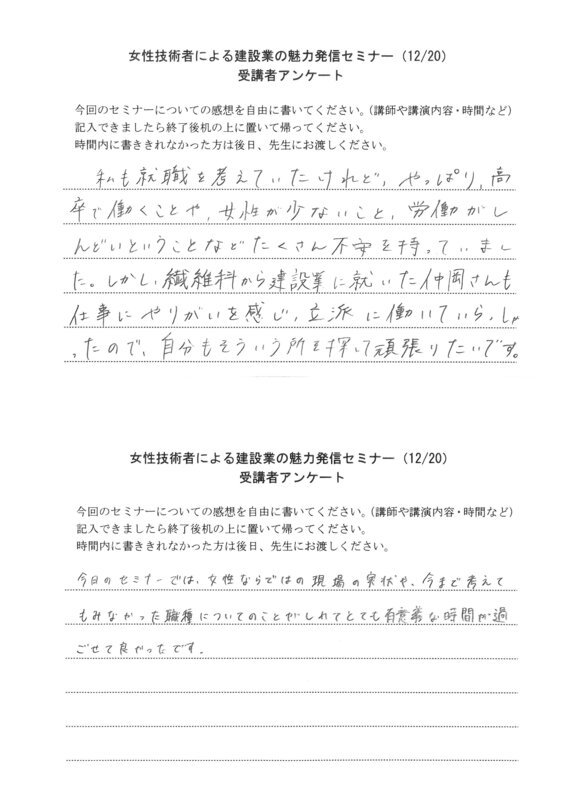 女性技術者による建設業の魅力発信セミナー（12/20）
受講者アンケート
今回のセミナーについての感想を自由に書いてください。（講師や講演内容・時間など）
記入できましたら終了後机の上に置いて帰ってください。
時間内に書ききれなかった方は後日、先生にお渡しください。
私も就職を考えていたけれど、やっぱり、高
卒で働くことや、女性が少ないこと、労働がし
んどいということなどたくさん不安を持っていまし
た。しかし、繊維科から建設業に就いた仲岡さんも
仕事にやりがいを感じ、立派に働いていらっしゃ
ったので、自分もそういう所を探して頑張りたいです。
女性技術者による建設業の魅力発信セミナー（12/20）
受講者アンケート
今回のセミナーについての感想を自由に書いてください。（講師や講演内容・時間など）
記入できましたら終了後机の上に置いて帰ってください。
時間内に書ききれなかった方は後日、先生にお渡しください。
今日のセミナーでは、女性ならではの現場の実状や、今まで考えて
もみなかった職種についてのことがしれてとても有意義な時間が過
ごせて良かったです。